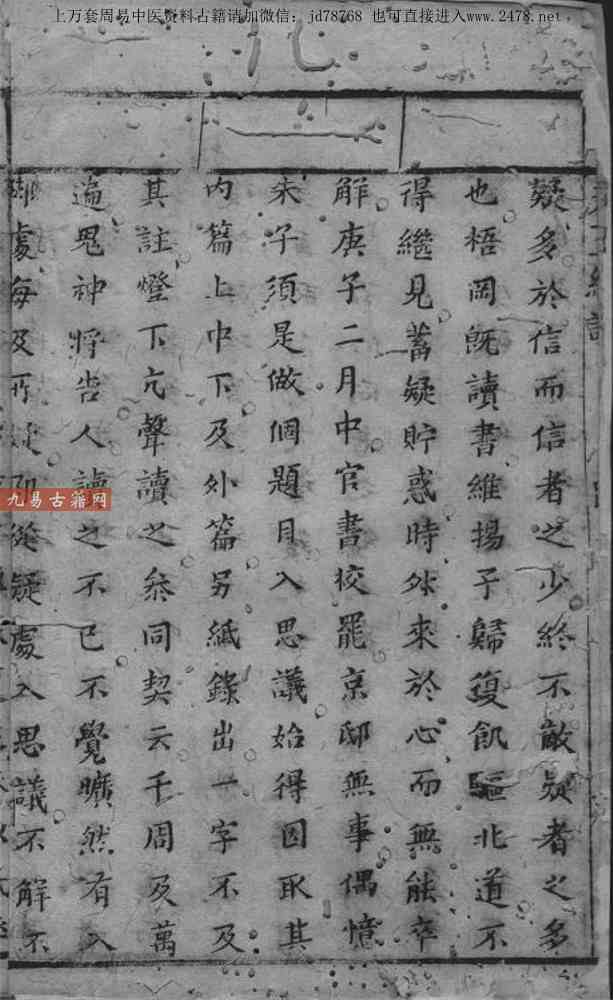 上万套周易中医资料古籍请加微信：jd78768 也可直接进入www.2478.net
疑多於信而信者之少終不敵疑者之多
也梧岡既讀書維揚予歸復飢驅北道不
得繼見蓄疑貯惑時往來於心而無能卒
解庚子二月中官書校罷京邸無事偶憶
朱子須是做個題目入思議始得因取其
内篇上中下及外篇另紙錄出一字不及
其註燈下亢聲讀之叅同契云千周及萬
遍鬼神將告人讀之不已不覺曠然有入
處每及所從疑處入思議不解不
九易古籍网